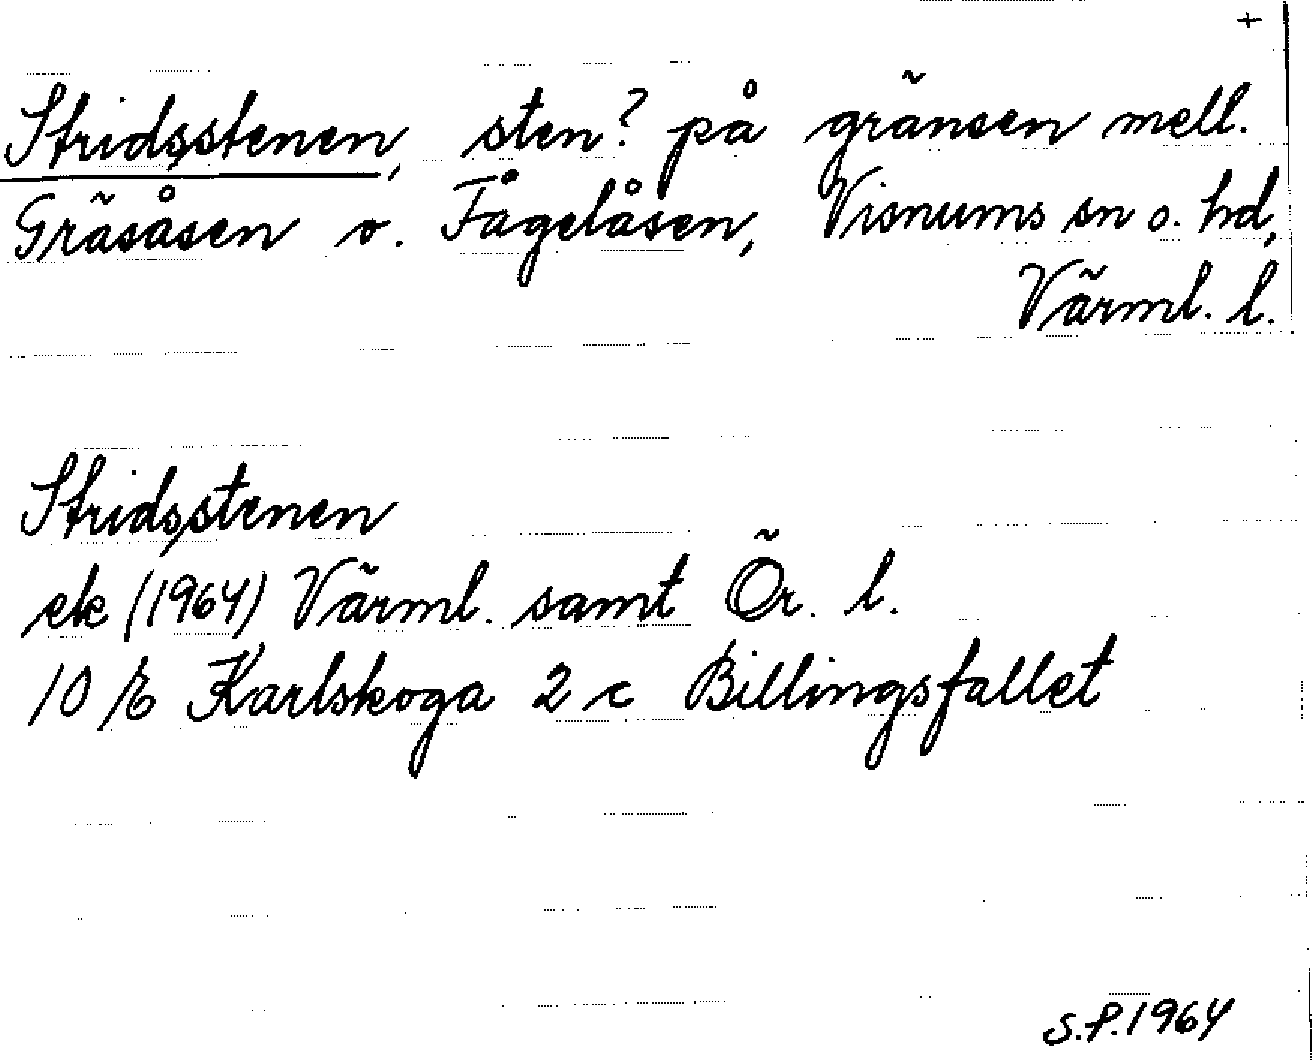 +
Stridsstenen, sten? på gränsen mell.
Gräsåsen o. Fågelåsen, Visnums sn o. hd,
Värml. l.
Stridsstenen
ek (1964) Värml. samt Ör. l.
10 E Karlskoga 2 c Billingsfallet
S.P. 1964